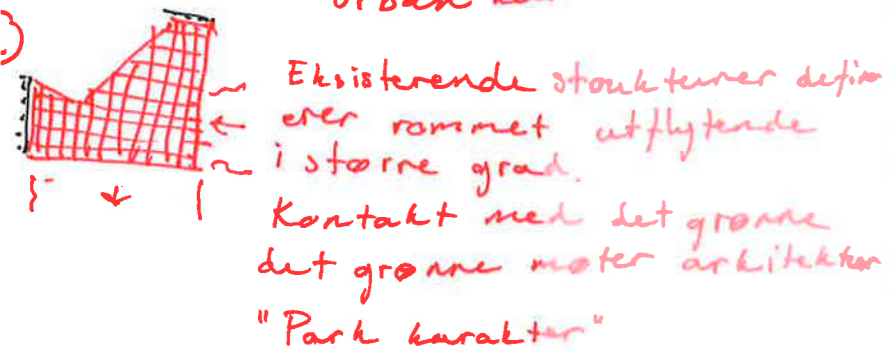 urban
Eksisterende strukturer defin
erer rommet utflytende
i større grad.
Kontakt med det grønne
det grønne møter arkitektur
"Park karakter"